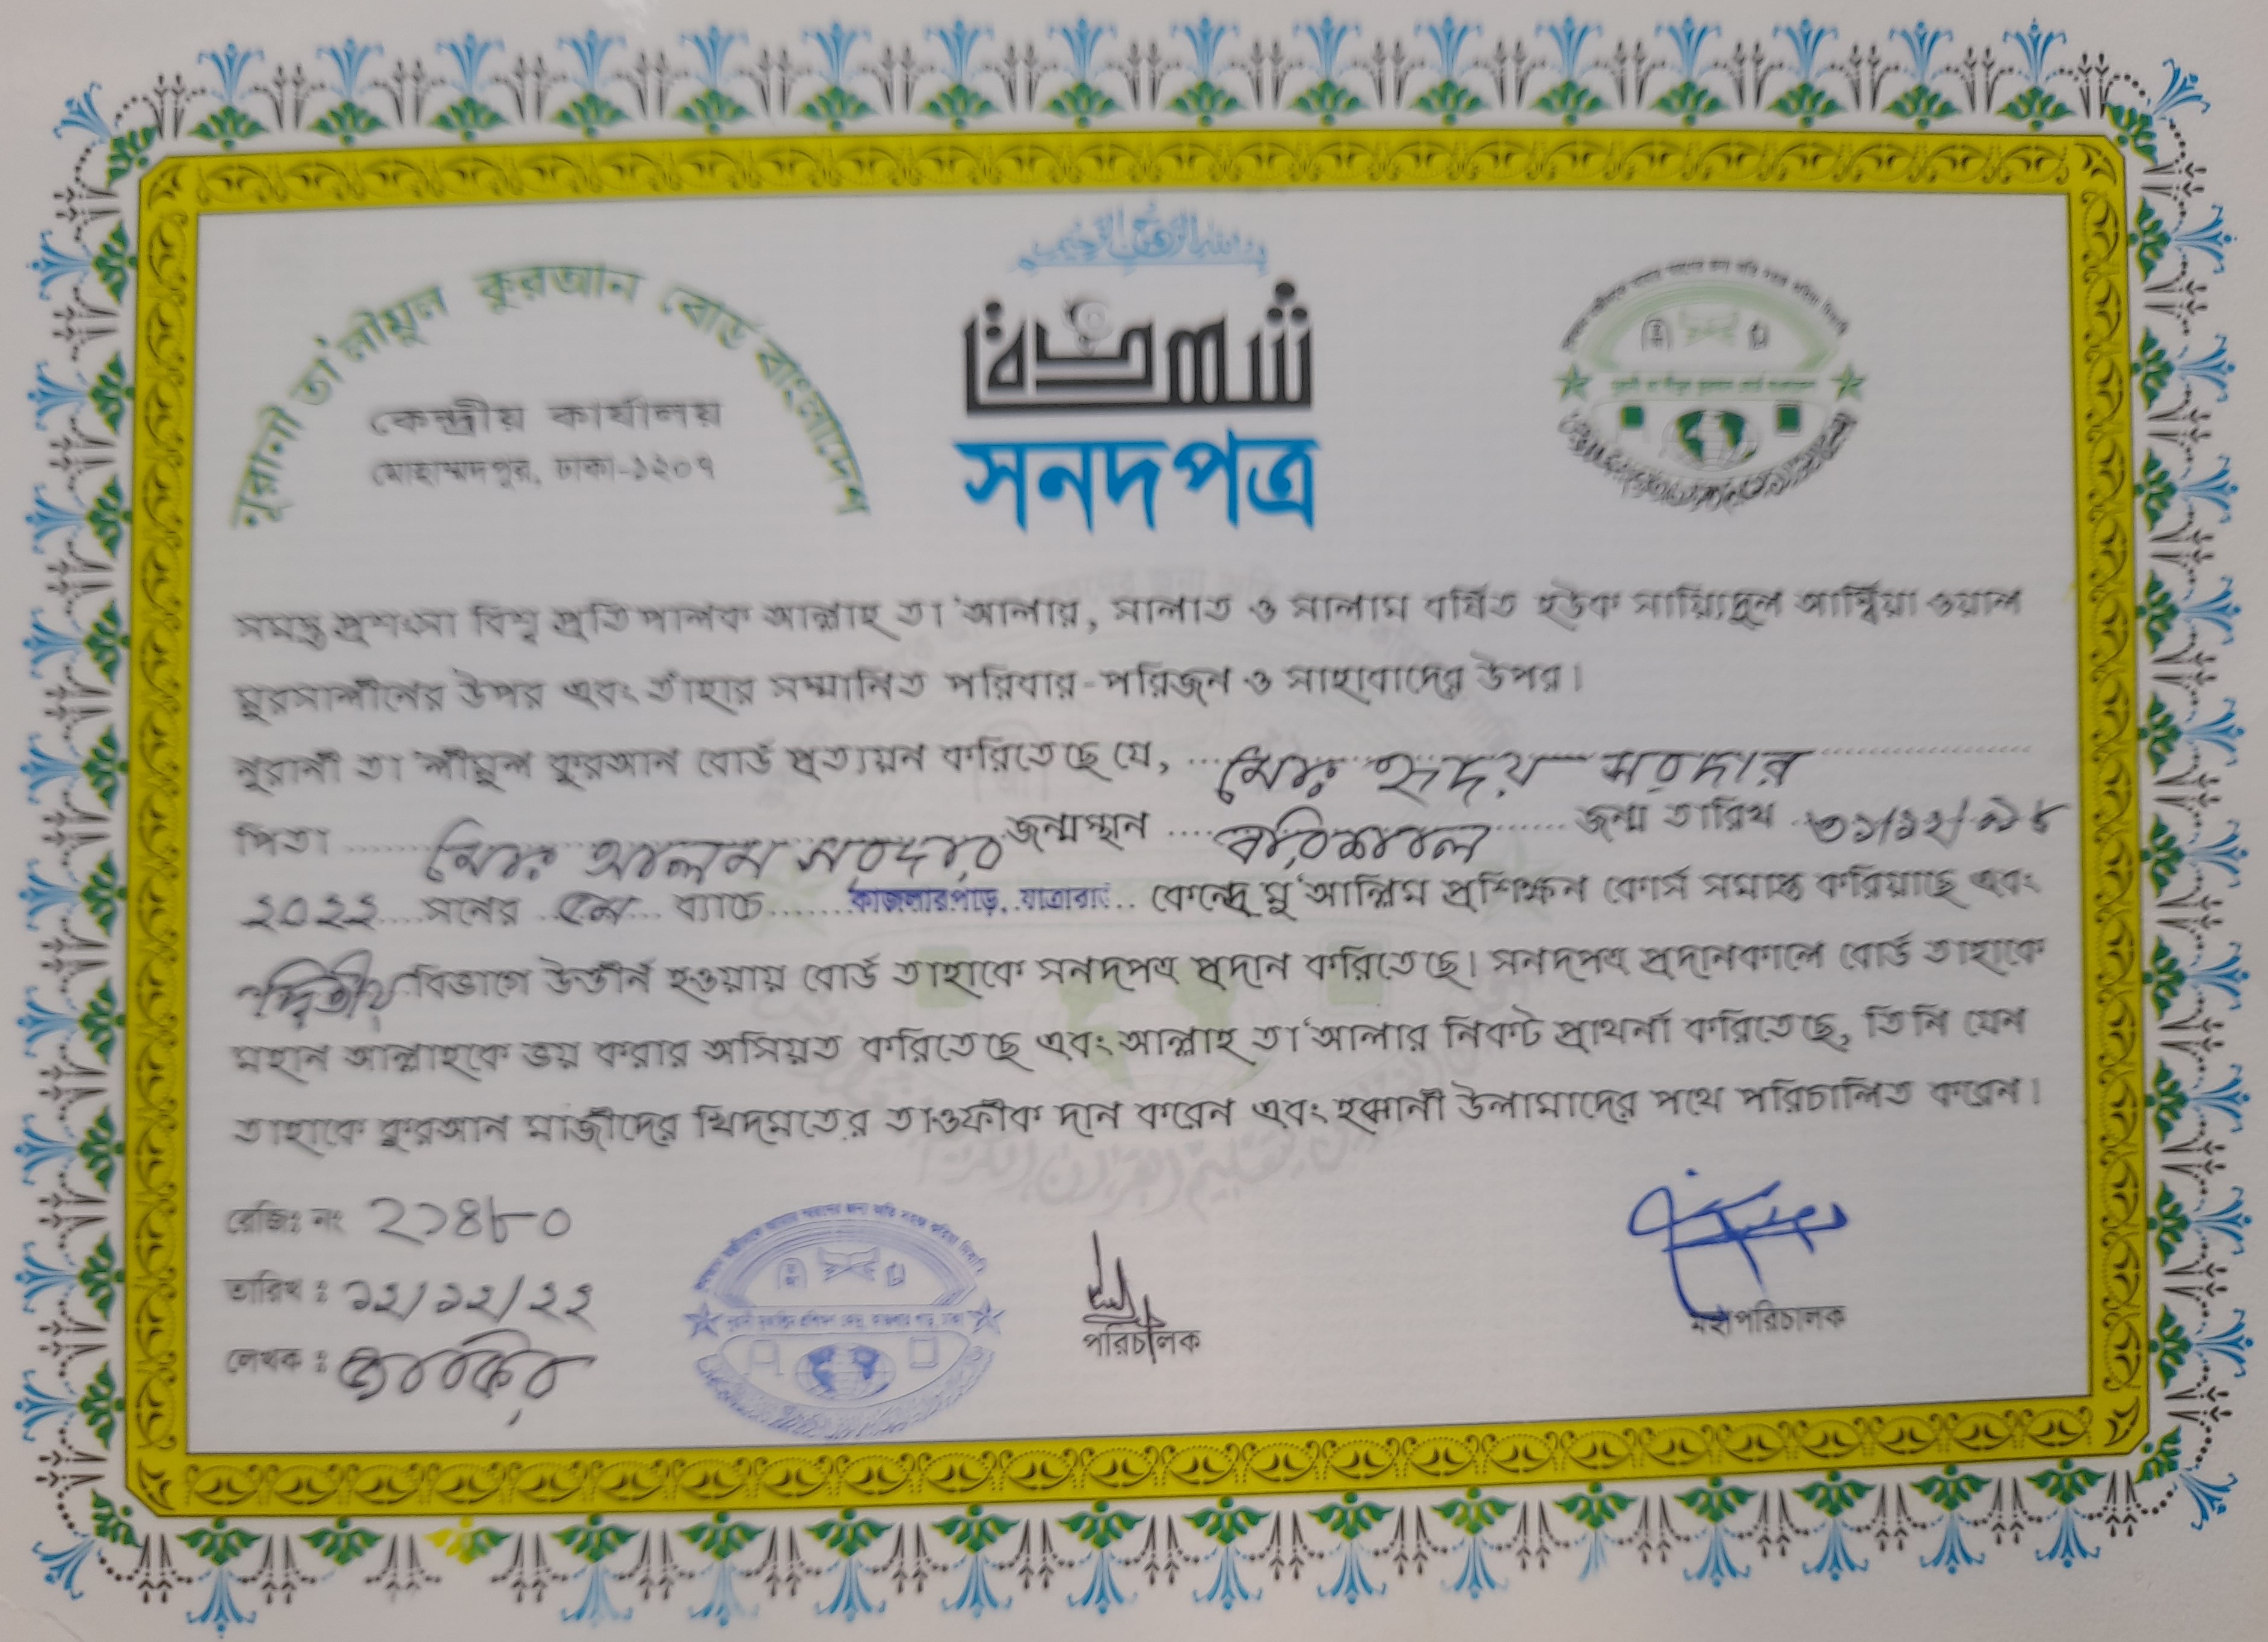 بسم الله الرحمن الرحيم
নূরানী তা'লীমুল কুরআন বোর্ড বাংলাদেশ
কেন্দ্রীয় কার্যালয়
মোহাম্মদপুর, ঢাকা-১২০৭
شهادة
সনদপত্র
সমস্ত প্রশংসা বিশ্ব প্রতিপালক আল্লাহ তা'আলার, সালাত ও সালাম বর্ষিত হউক সায়্যিদুল আম্বিয়া ওয়াল
মুরসালীনের উপর এবং তাঁহার সম্মানিত পরিবার-পরিজন ও সাহাবাদের উপর।
নূরানী তা'লীমুল কুরআন বোর্ড প্রত্যয়ন করিতেছে যে, মোঃ হৃদয় সরদার
পিতা মোঃ আলম সরদার জন্মস্থান বরিশাল জন্ম তারিখ ৩১/১২/৯৮
২০২২ সনের ৫ম ব্যাচে কাজলারপাড়, যাত্রাবাড়ী কেন্দ্রে মু'আল্লিম প্রশিক্ষন কোর্স সমাপ্ত করিয়াছে এবং
দ্বিতীয় বিভাগে উত্তীর্ন হওয়ায় বোর্ড তাহাকে সনদপত্র প্রদান করিতেছে। সনদপত্র প্রদানকালে বোর্ড তাহাকে
মহান আল্লাহকে ভয় করার অসিয়ত করিতেছে এবং আল্লাহ তা'আলার নিকট প্রাথর্না করিতেছে, তিনি যেন
তাহাকে কুরআন মাজীদের খিদমতের তাওফীক দান করেন এবং হক্কানী উলামাদের পথে পরিচালিত করেন।
রেজিঃ নং ২১৪৮০
তারিখ : ১২/১২/২২
লেখক :
পরিচালক
মহাপরিচালক